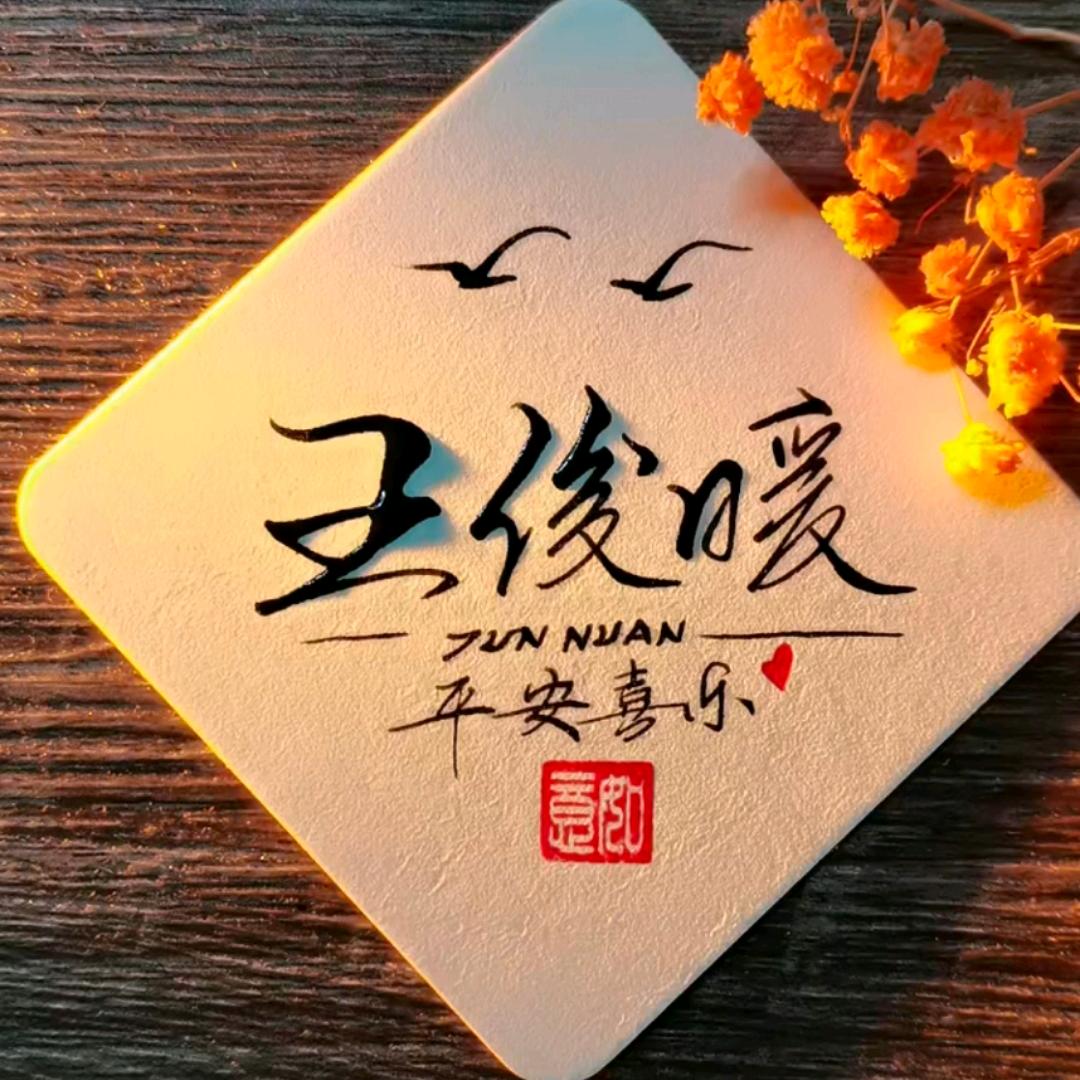 王俊暖
JUN NUAN
平安喜乐
如意